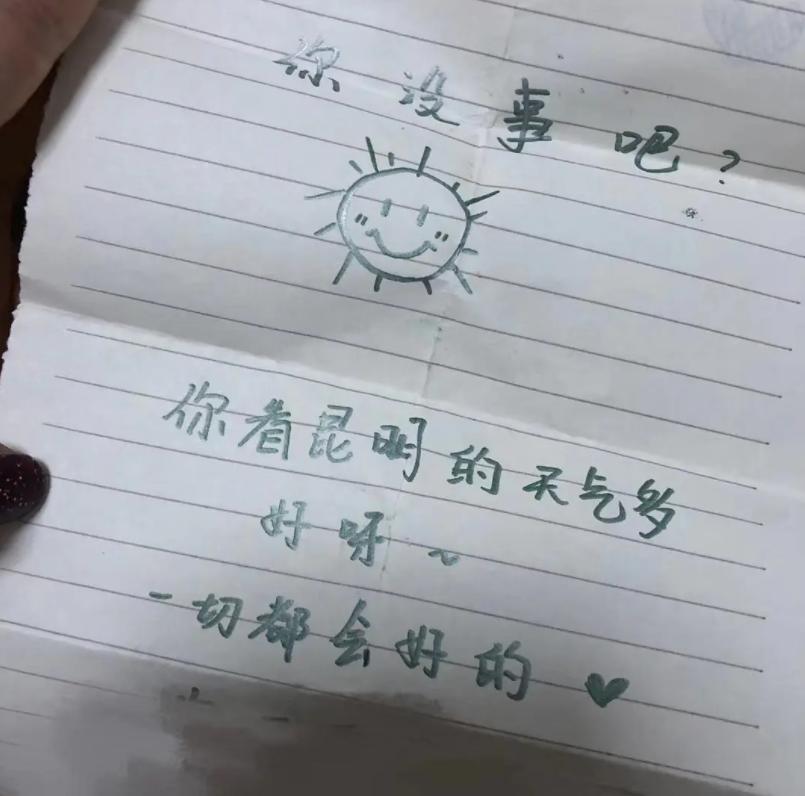 你没事吧？
你看昆明的天气多
好呀～
一切都会好的